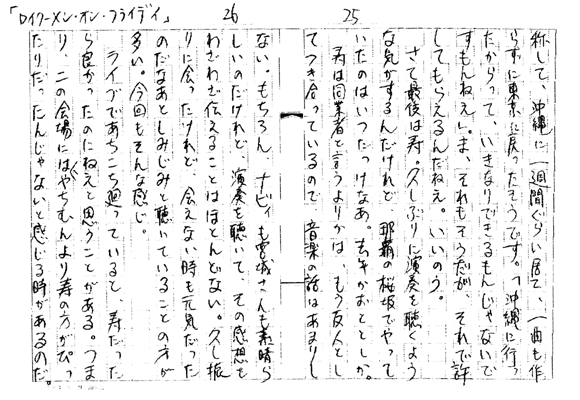 「ロイクーメン・オン・フライデイ」
25
称して、沖縄に一週間ぐらい居て、一曲も作
らずに東京に戻ったそうです。「沖縄に行っ
たからって、いきなりできるもんじゃないで
すもんねえ」。ま、それもそうだが、それで許
してもらえるんだねえ。いいのう。
さて最後は寿。久しぶりに演奏を聴くよう
な気がするんだけれど、那覇の桜坂でやって
いたのはいつだっけなあ。去年かおととしか。
寿は同業者と言うよりかは、もう友人とし
てつき合っているので、音楽の話はあまりし
26
ない。もちろん、ナビィも宮城さんも素晴ら
しいのだけれど、演奏を聴いて、その感想を
わざわざ伝えることはほとんどない。久し振
りに会ったけれど、会えない時も元気だった
のだなあとしみじみと聴いていることの方が
多い。今回もそんな感じ。
ライブであちこち廻っていると、寿だった
ら良かったのにねえと思うことがある。つま
り、この会場にはやちむんより寿の方がぴっ
たりだったんじゃないと感じる時があるのだ。